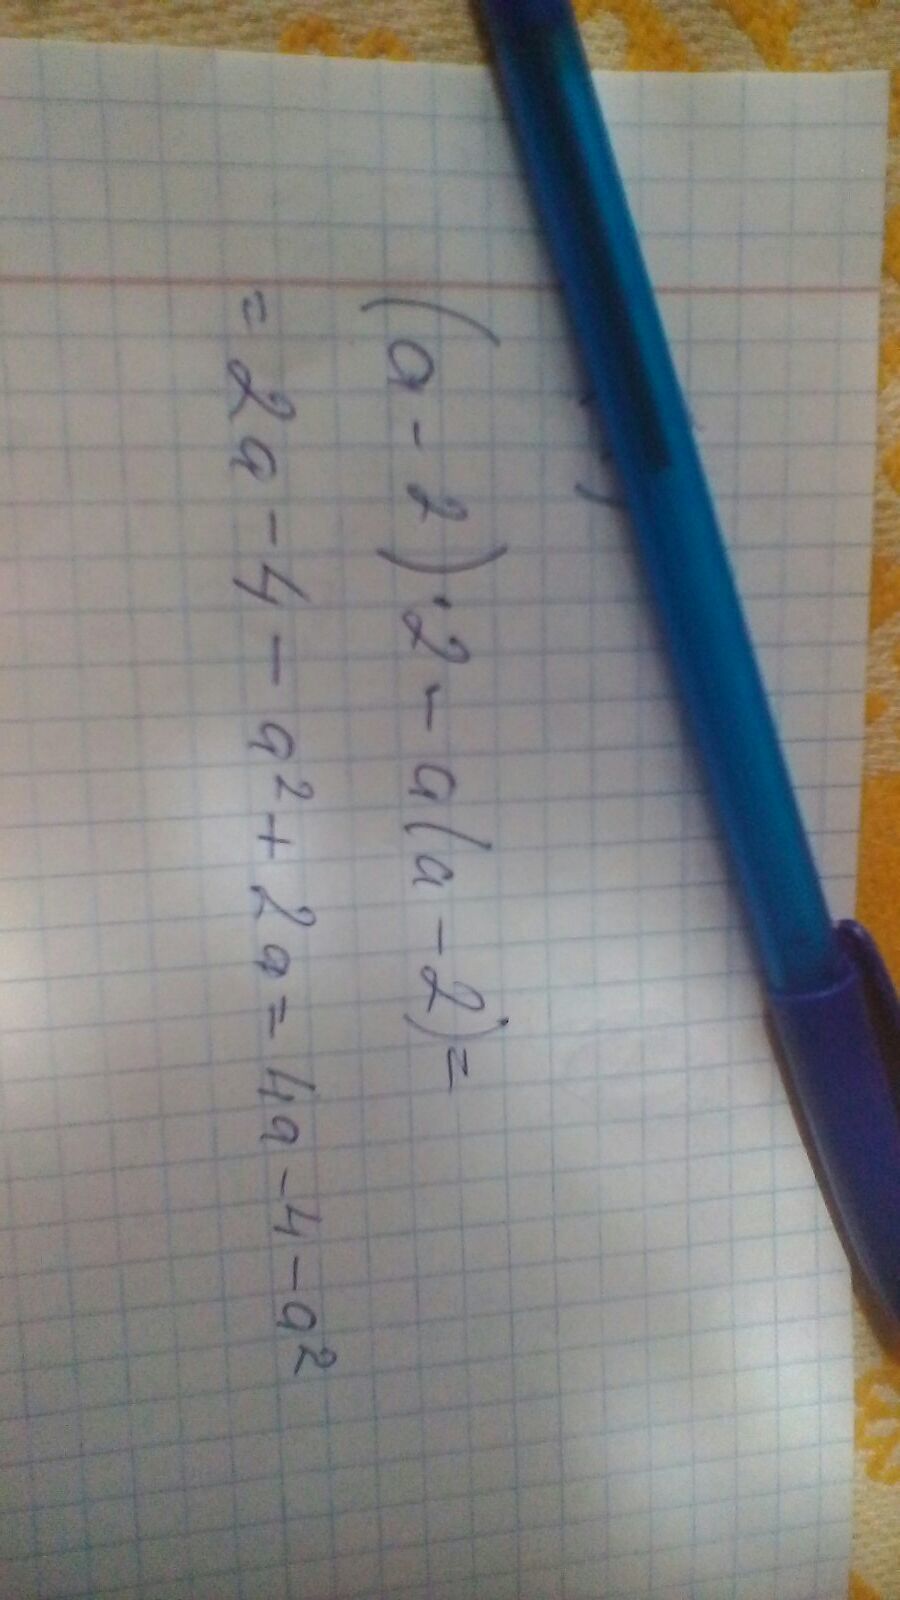 (a-2)·2-a(a-2)=
=2a-4-a²+2a=4a-4-a²